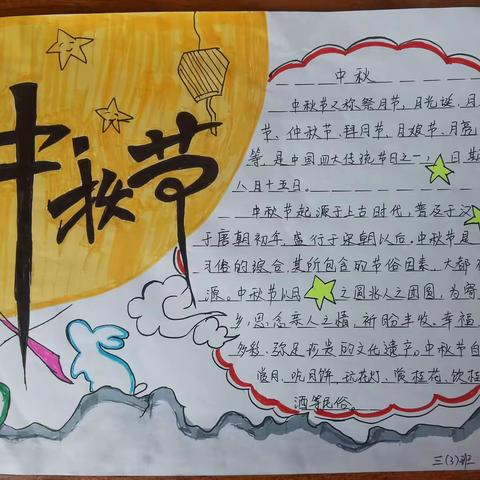 中秋节
中秋
中秋节又称祭月节,月光诞,月
节、仲秋节、拜月节、月娘节、月亮
等,是中国四大传统节日之一,日期
八月十五日。
中秋节起源于上古时代,普及于汉
于唐朝初年,盛行于宋朝以后。中秋节是
习俗的综合,其所包含的节俗因素,大都
源。中秋节以月之圆兆人之团圆,为寄
乡,思念亲人之情,祈盼丰收、幸福,
多彩、弥足珍贵的文化遗产。中秋节自
赏月、吃月饼、玩花灯、赏桂花、饮桂
酒等民俗。
三(3)班